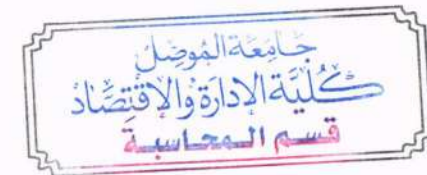 جَامِعَة المُوصِل
كُلِّيَّة الإدارَة وَالاقْتِصَاد
قسم المحاسبة